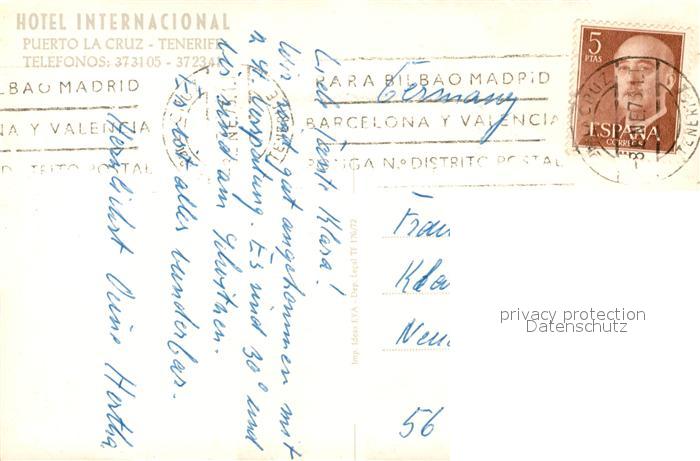 HOTEL INTERNACIONAL
PUERTO LA CRUZ - TENERIFE
TELEFONOS: 373105 - 37234
LBAO MADRID
NA Y VALENCIA
PARA BILBAO MADRID
BARCELONA Y VALENCIA
PONGA Nº DISTRITO POSTAL
5
PTAS
ESPAÑA
CORREOS
Germany
Liebe Tante Klara!
Wir sind gut angekommen mit
2 St. Verspätung. Es sind 30° und
wir sind am Schwitzen.
Es ist alles wunderbar.
Herzlichst Deine Hertha
Imp. Ideas EYA - Dep. Legal TF 170/72
Frau
Kla
Neu
56
privacy protection
Datenschutz